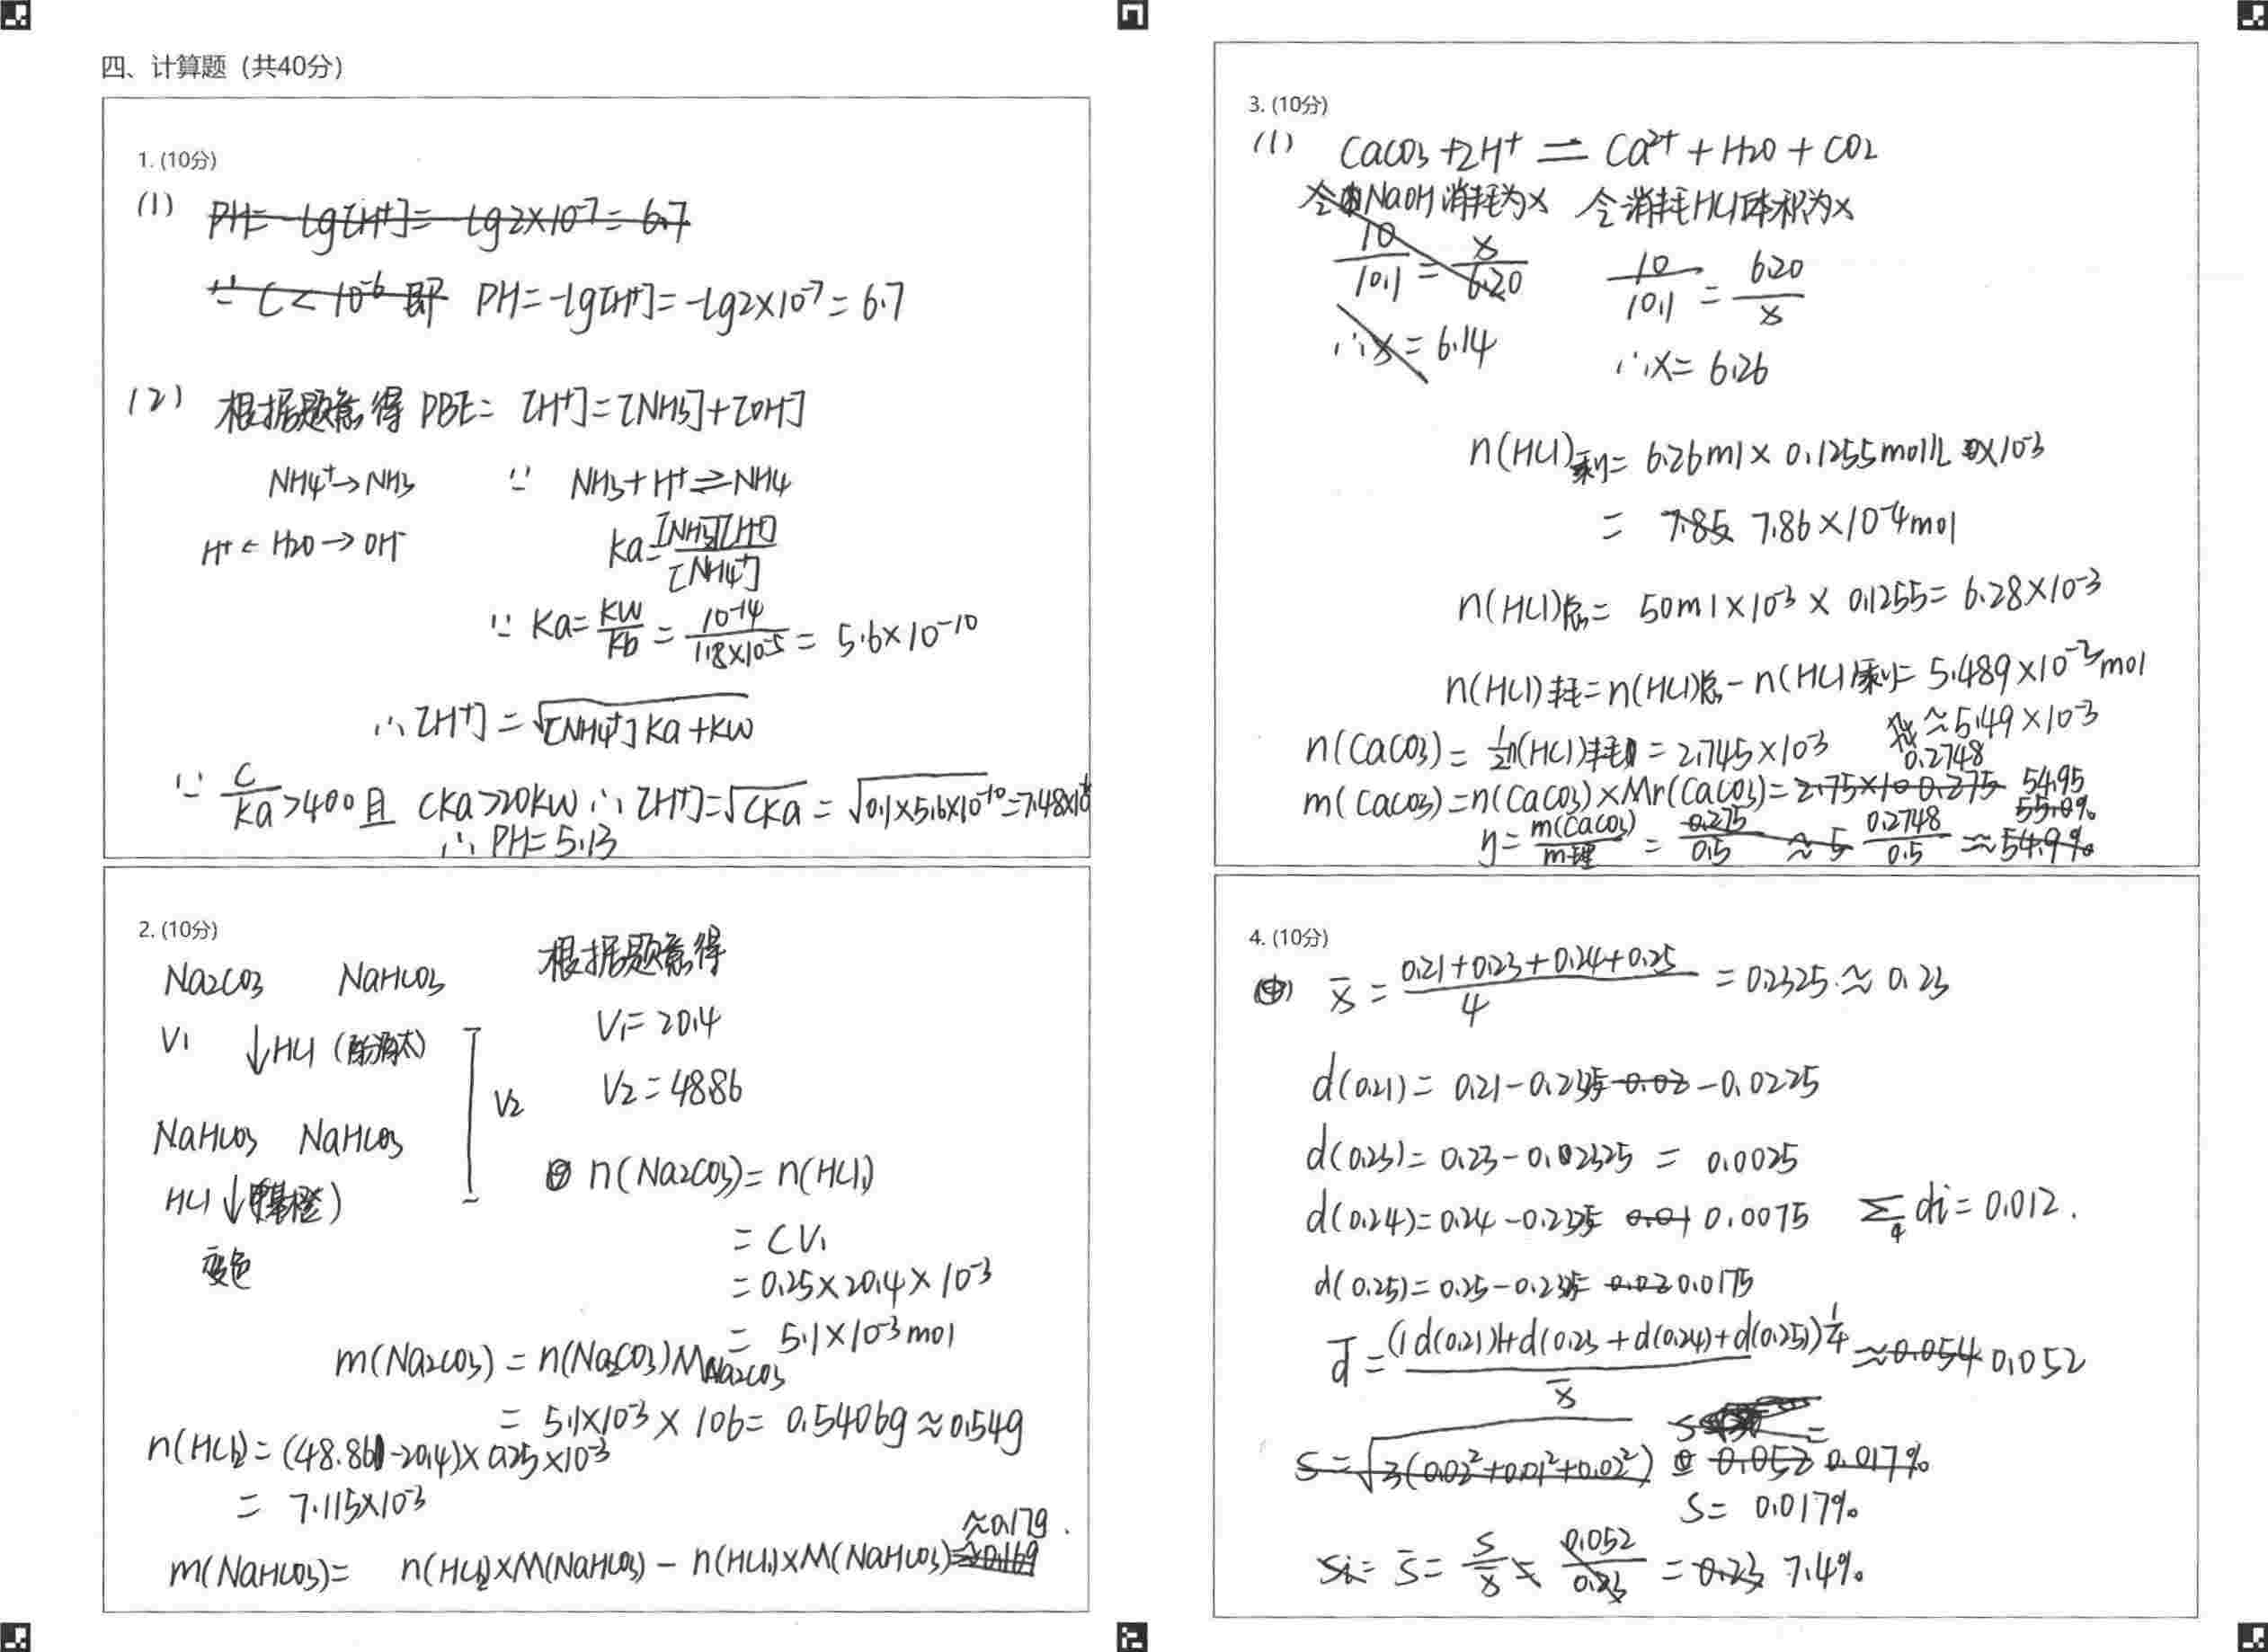 四、计算题（共40分）
1. (10分)
(1) PH= -lg[H⁺]= -lg2×10⁻⁷ = 6.7
∵ C < 10⁻⁶ 即 PH= -lg[H⁺]= -lg2×10⁻⁷ = 6.7
(2) 根据题意得 PBE= [H⁺]=[NH₃]+[OH⁻]
NH₄⁺→NH₃ ∵ NH₃+H⁺⇌NH₄
H⁺←H₂O→OH⁻ ka=[NH₃][H⁺]/[NH₄⁺]
∵ Ka= kw/kb = 10⁻¹⁴/1.8×10⁻⁵ = 5.6×10⁻¹⁰
∴ [H⁺] = √[NH₄⁺]ka+kw
∵ C/ka >400 且 Cka>20kw ∴ [H⁺]=√Cka = √0.1×5.6×10⁻¹⁰ =7.48×10⁻⁶
∴ PH=5.13
2. (10分)
根据题意得
Na₂CO₃ NaHCO₃
V₁=20.4
V₁ ↓HCl (酚酞)
V₂ V₂=48.86
NaHCO₃ NaHCO₃
n(Na₂CO₃)= n(HCl₁)
HCl↓(甲基橙)
= CV₁
变色
= 0.25×20.4×10⁻³
= 5.1×10⁻³mol
m(Na₂CO₃) = n(Na₂CO₃)M Na₂CO₃
= 5.1×10⁻³×106= 0.5406g≈0.54g
n(HCl₂)=(48.86-20.4)×0.25×10⁻³
= 7.115×10⁻³
≈0.17g.
m(NaHCO₃)= n(HCl₂)×M(NaHCO₃) - n(HCl₁)×M(NaHCO₃)=≈0.16g
3. (10分)
(1) CaCO₃+2H⁺ = Ca²⁺+H₂O+CO₂
NaOH消耗为x 令消耗HCl体积为x
10/10.1 = x/6.20 10/10.1 = 6.20/x
∴x=6.14 ∴x=6.26
n(HCl)剩= 6.26ml×0.1255mol/L×10⁻³
= 7.85 7.86×10⁻⁴mol
n(HCl)总= 50ml×10⁻³×0.1255= 6.28×10⁻³
n(HCl)耗=n(HCl)总-n(HCl)剩= 5.489×10⁻³mol
≈5.49×10⁻³
n(CaCO₃)= ½n(HCl)耗 = 2.745×10⁻³
0.2748
m(CaCO₃)=n(CaCO₃)×Mr(CaCO₃)= 2.75×10 0.275 54.95
55.0%
η= m(CaCO₃)/m理 = 0.275/0.5 ≈5 0.2748/0.5 ≈54.9%
4. (10分)
x̄ = 0.21+0.23+0.24+0.25/4 = 0.2325≈0.23
d(0.21)= 0.21-0.2325 -0.02 -0.0225
d(0.23)= 0.23-0.02325 = 0.0025
d(0.24)=0.24-0.2325 0.01 0.0075 Σ₄di=0.012.
d(0.25)=0.25-0.2325 0.02 0.0175
d̄= (|d(0.21)|+d(0.23+d(0.24)+d(0.25))¼/x̄ ≈0.054 0.052
S=√3(0.02²+0.01²+0.02²) 0.052 0.017%
S= 0.017%
Si= S̄= S/x̄ = 0.052/0.23 =0.23 7.4%